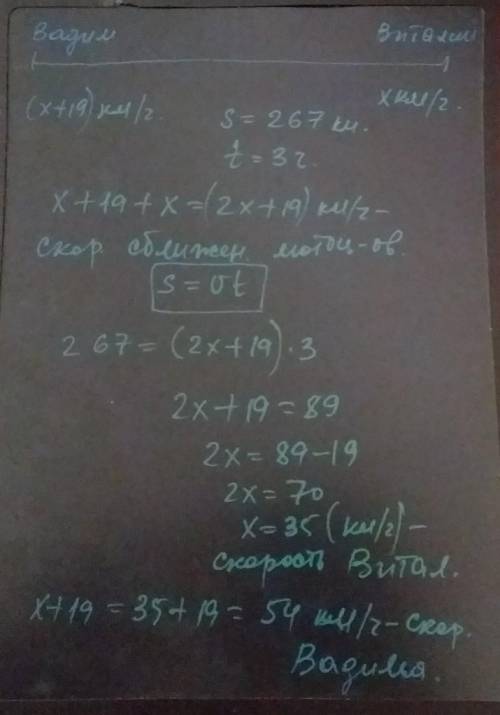 Вадим Виталий
(x+19) км/ч. x км/ч.
S = 267 км.
t = 3 ч.
x+19+x=(2x+19) км/ч-
скор. сближен. мотоц-ов.
S = vt
267 = (2x+19)·3
2x+19 = 89
2x = 89-19
2x = 70
x = 35 (км/ч) -
скорость Витал.
x+19 = 35+19 = 54 км/ч-скор.
Вадима.